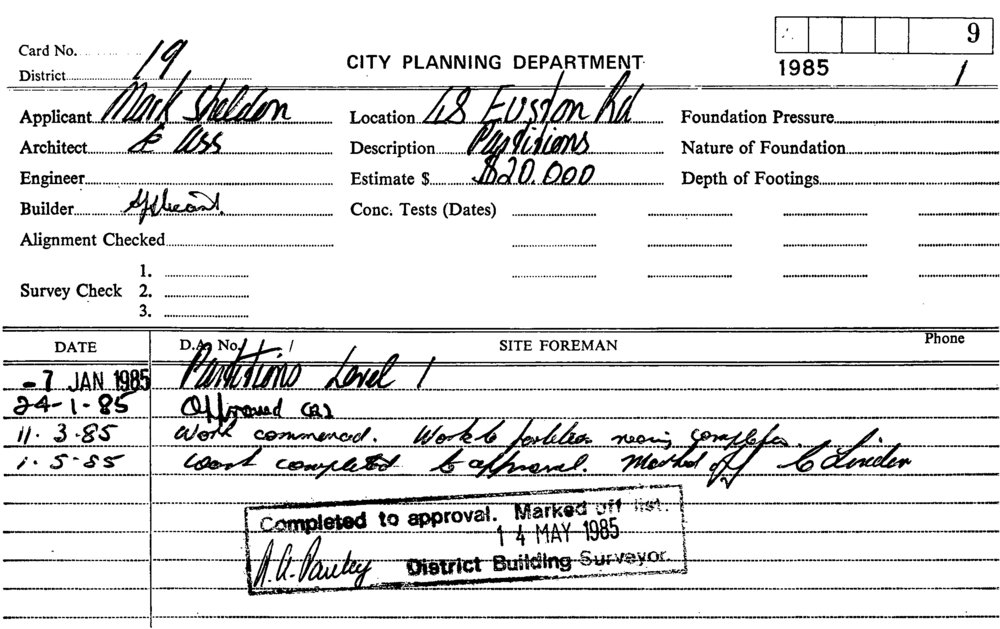 9
Card No. 19
District
CITY PLANNING DEPARTMENT
1985 1
Applicant Mark Sheldon
Location 48 Euston Rd
Foundation Pressure
Architect & Ass
Description Partitions
Nature of Foundation
Engineer
Estimate $ $20.000
Depth of Footings
Builder Applicant.
Conc. Tests (Dates)
Alignment Checked
1.
Survey Check 2.
3.
DATE D.A. No. / SITE FOREMAN Phone
-7 JAN 1985 Partitions Level 1
24-1-85 Approved
11.3.85 Work commenced. Work to
1.5-85 Work completed to approval. Marked off
Completed to approval. Marked off list.
14 MAY 1985
District Building Surveyor.